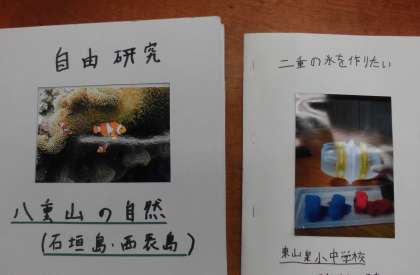 自由研究
八重山の自然
(石垣島・西表島)
二重の氷を作りたい
東山泉小中学校